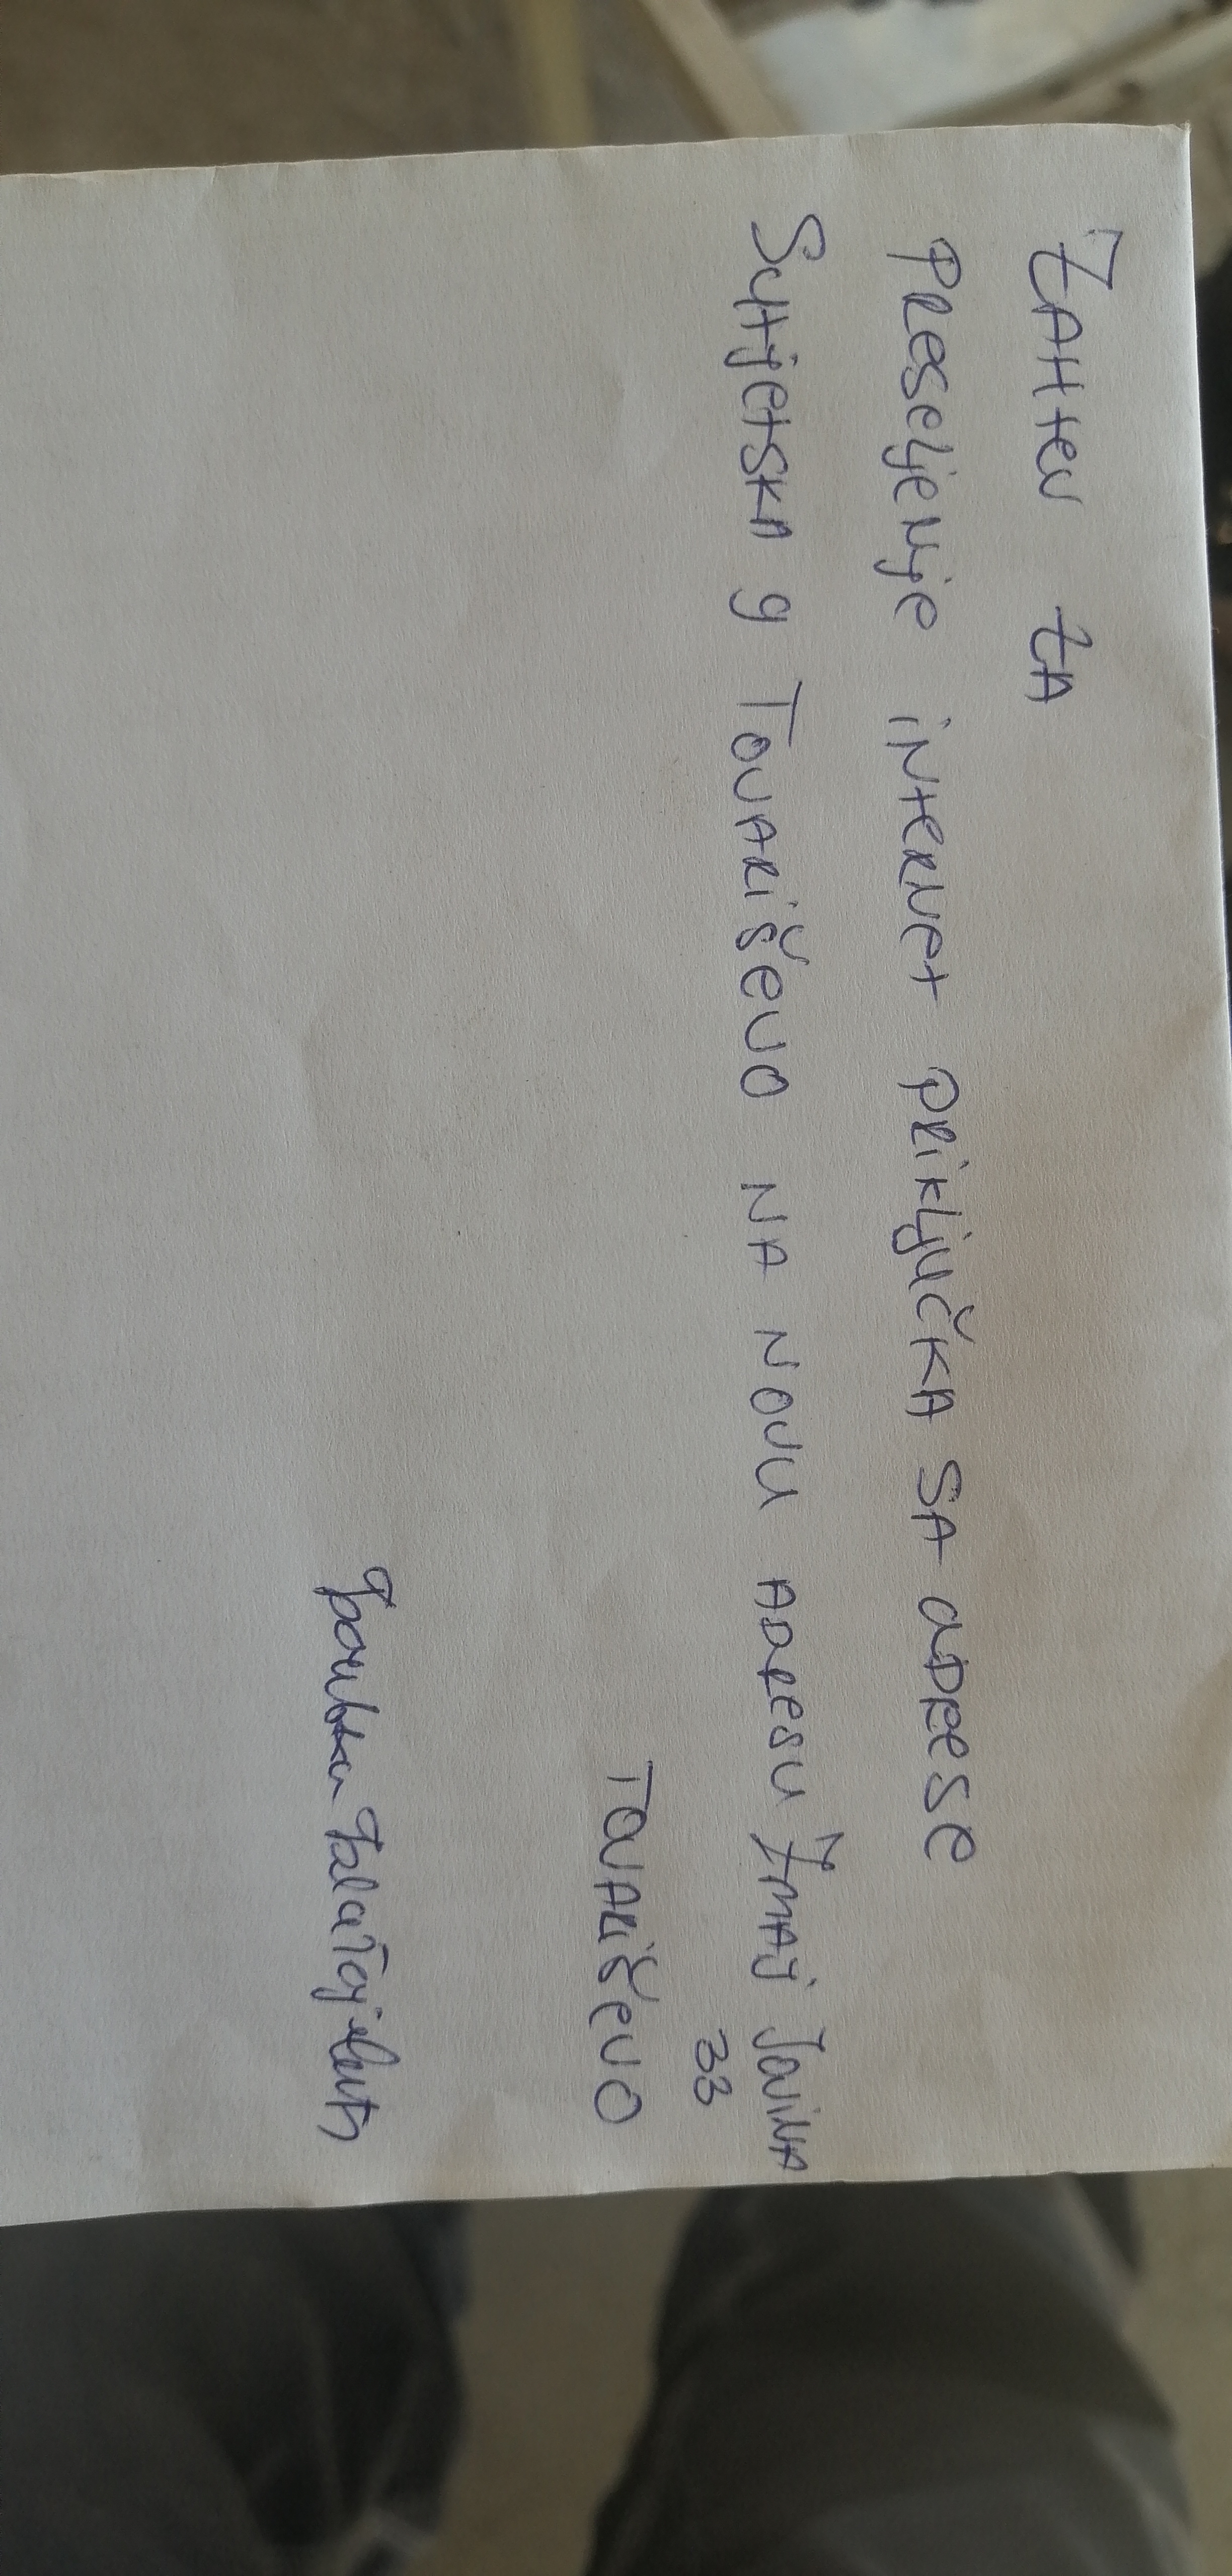 ZAHtev ZA
Preseljenje internet priključka SA adrese
Sutjetska 9 Tovariševo NA NOVU ADRESU Zmaj Jovina
33
Tovariševo